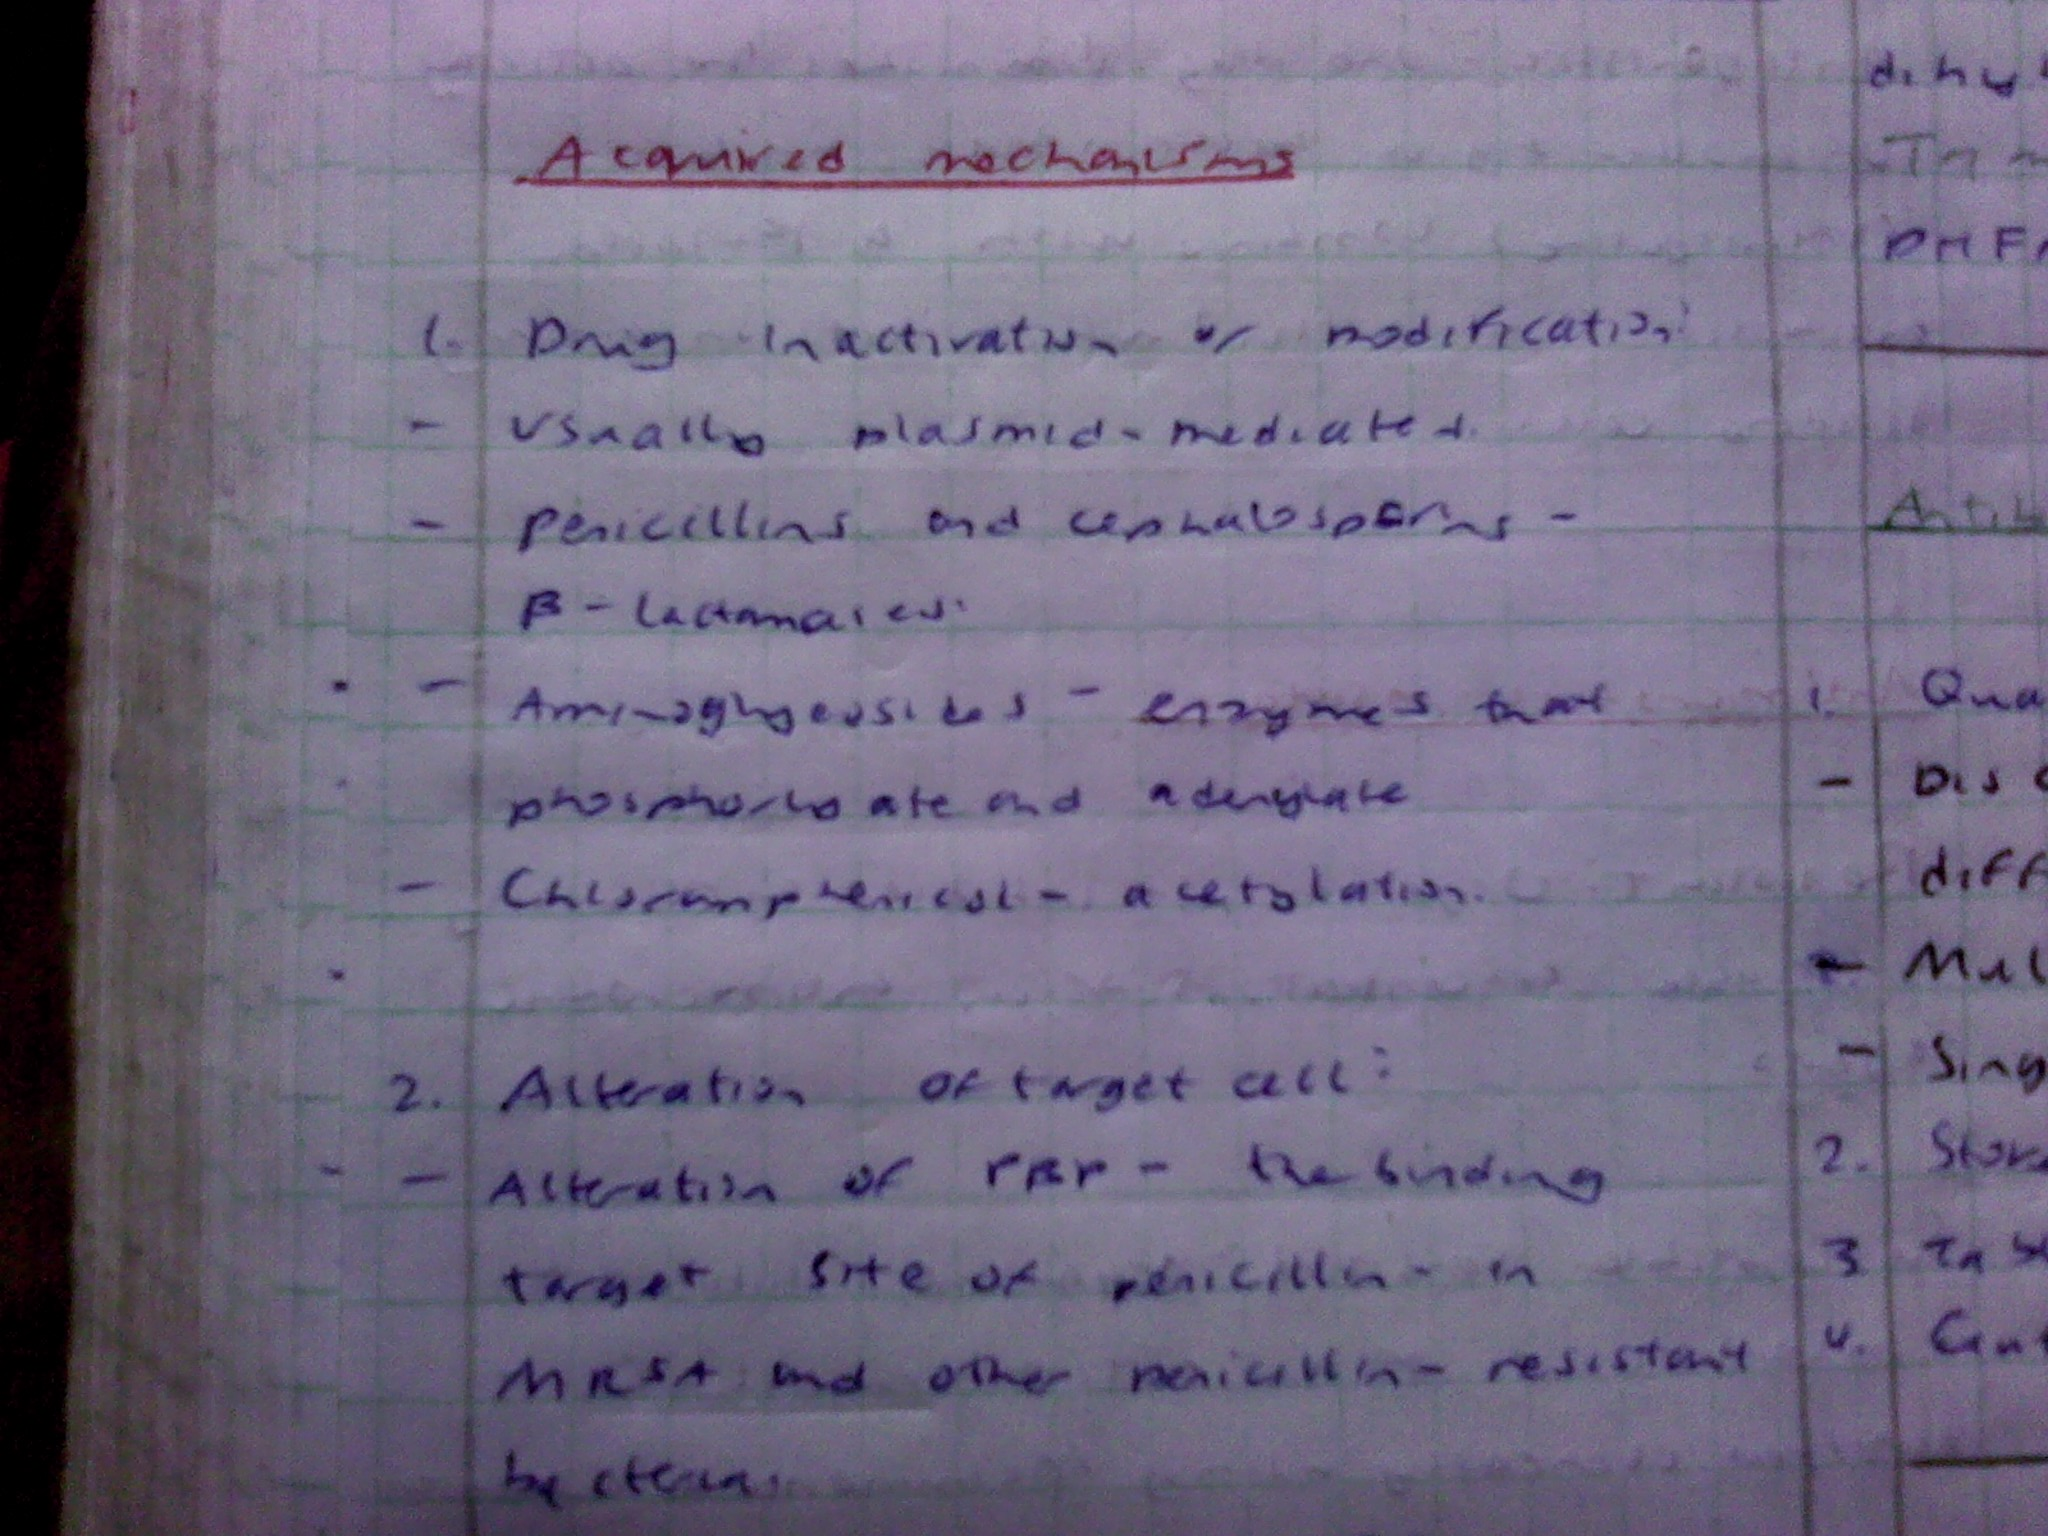 Acquired mechanisms
1. Drug inactivation or modification:
- Usually plasmid-mediated.
- Penicillins and cephalosporins -
β - lactamases.
- Aminoglycosides - enzymes that
phosphorylate and adenylate
- Chloramphenicol - acetylation.
2. Alteration of target cell:
- Alteration of PBP - the binding
target site of penicillin - in
MRSA and other penicillin-resistant
bacterias.
dihy
DHF
Antib
1. Qua
- Disc
diff
- Mul
- Sing
2. Stor
3
4. Cent